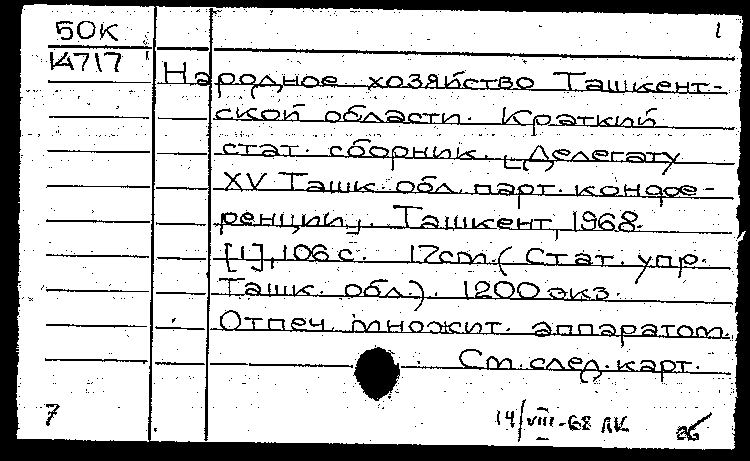 БОК 1
14717
Народное хозяйство Ташкент-
ской области. Краткий
стат. сборник. [Делегату
XV Ташк. обл. парт. конфе-
ренции]. Ташкент, 1968.
[1], 106 с. 17 cm. (Стат. упр.
Ташк. обл.). 1200 экз.
Отпеч. множит. аппаратом.
См. след. карт.
7 14/VIII-68 ЛК